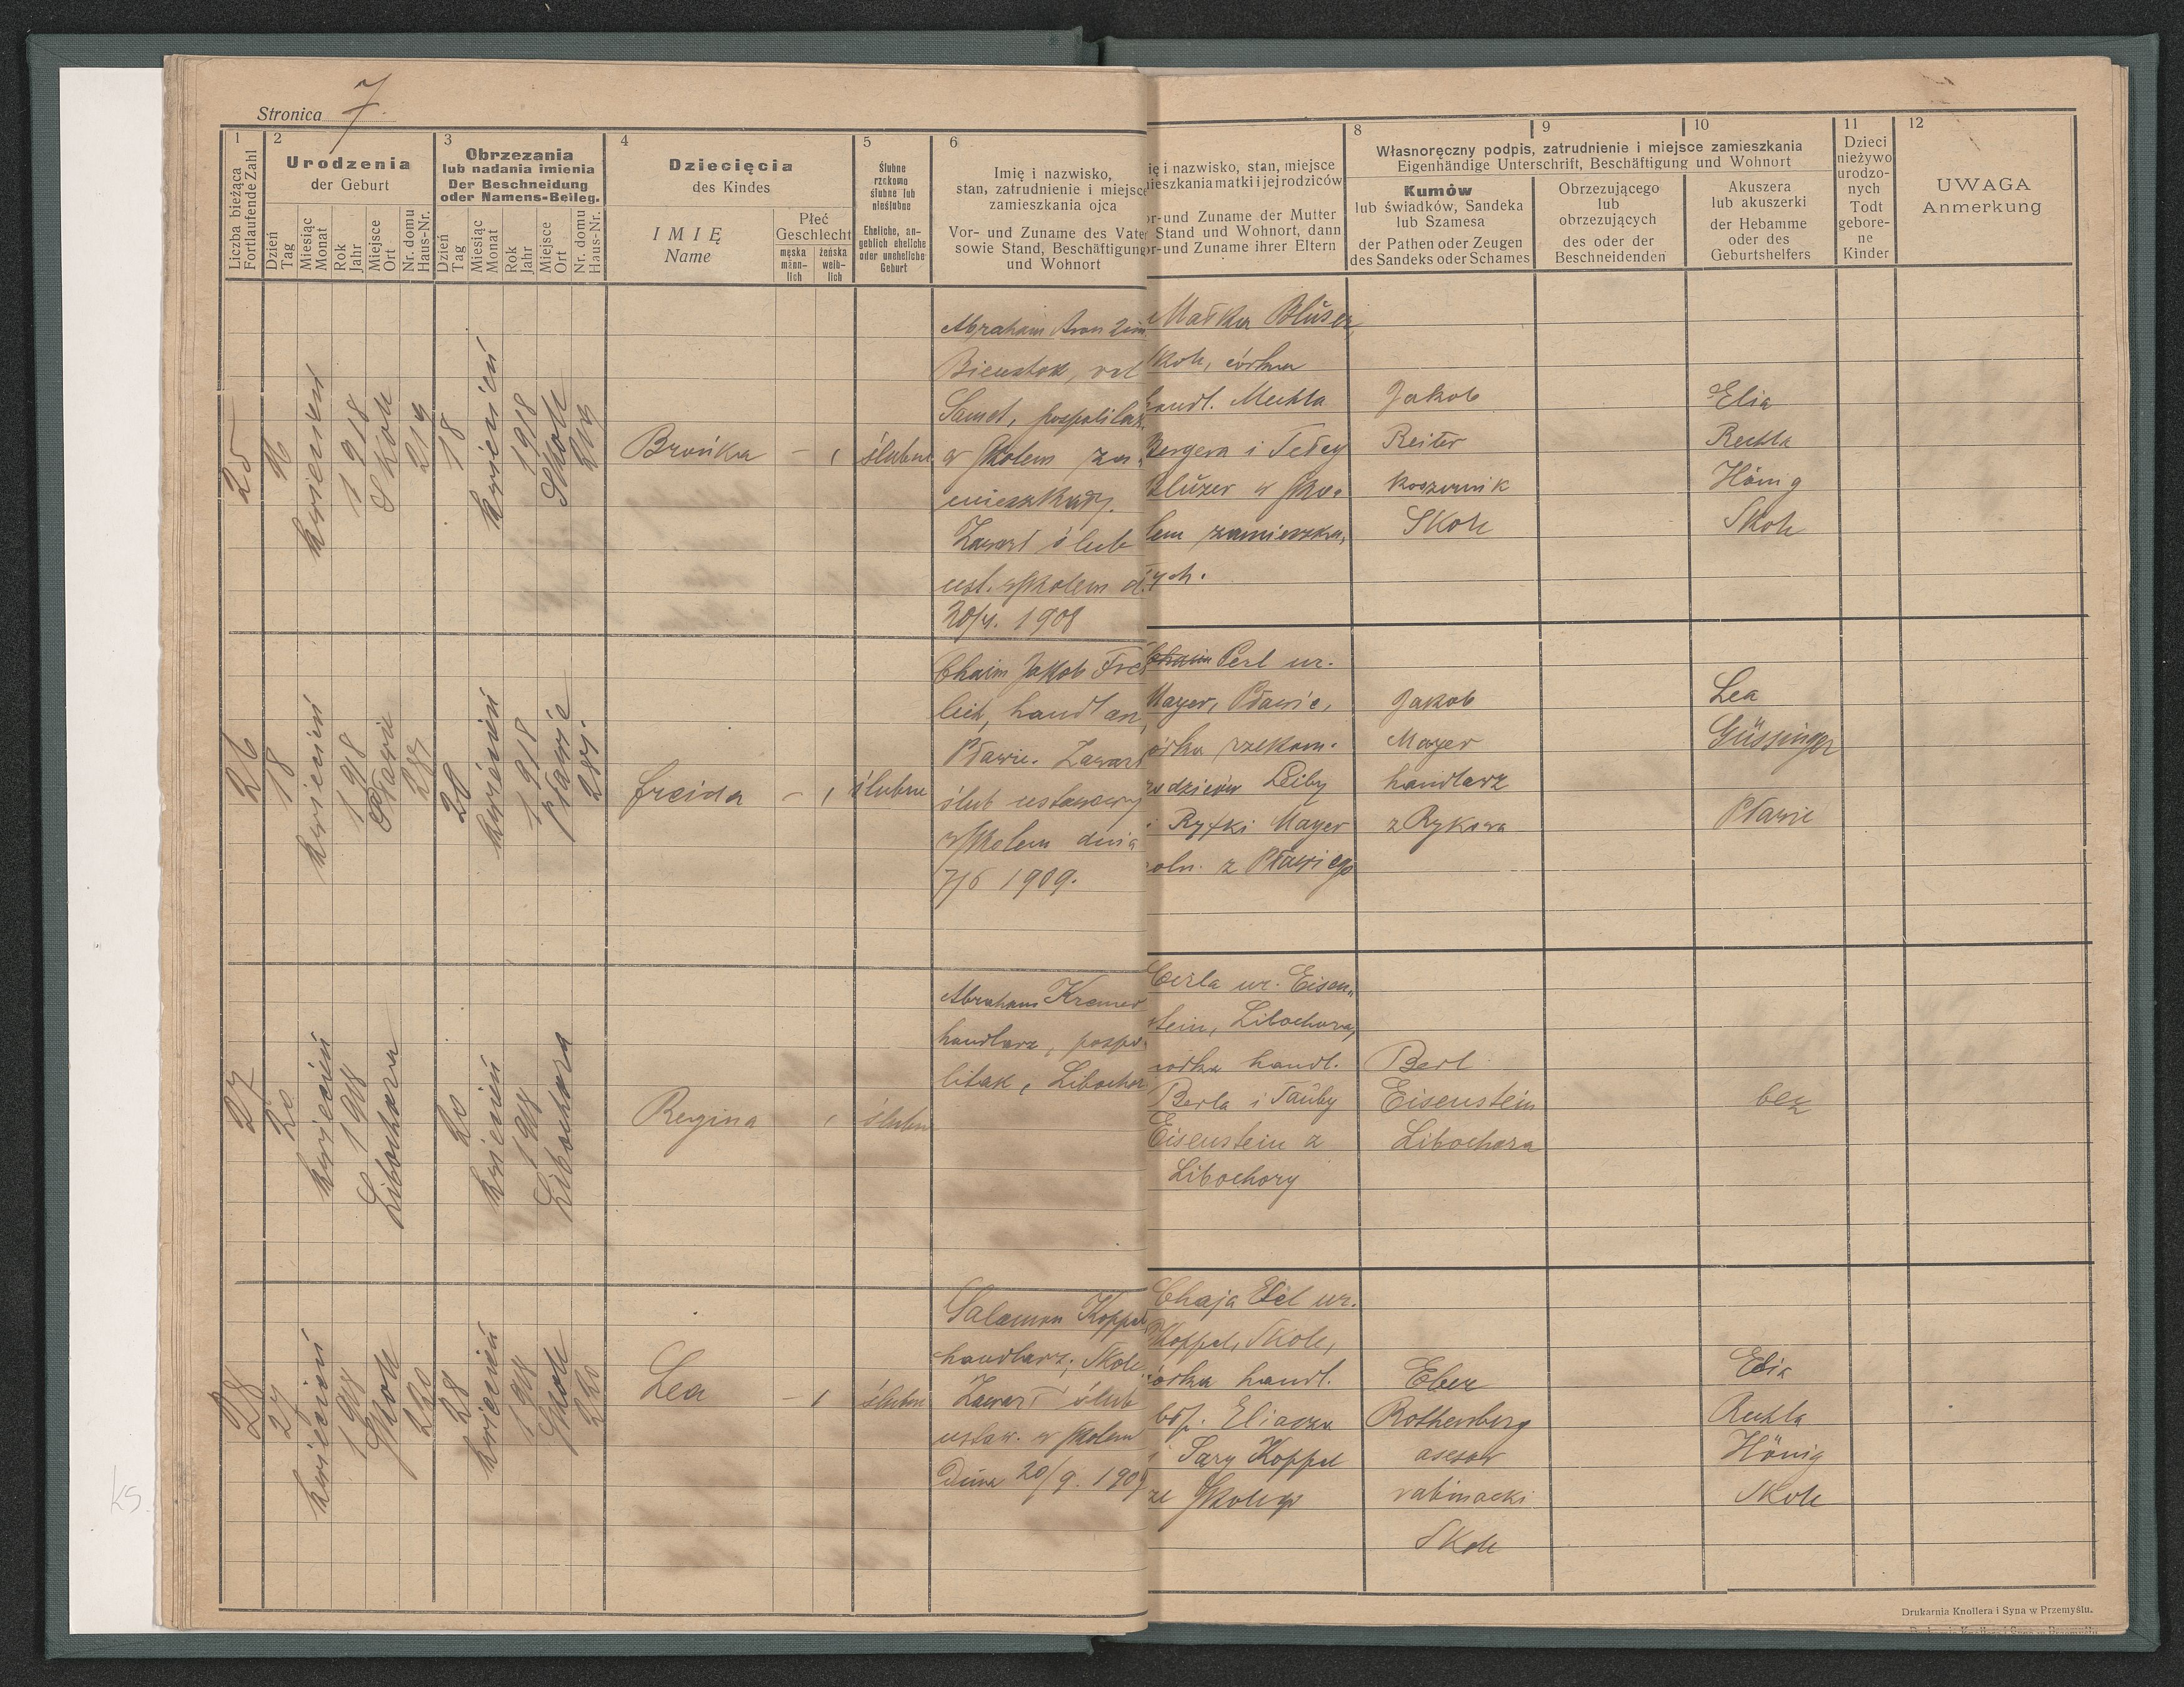 Stronica 7.
1
Liczba bieżąca
Fortlaufende Zahl
2
Urodzenia
der Geburt
Dzień
Tag
Miesiąc
Monat
Rok
Jahr
Miejsce
Ort
Nr. domu
Haus-Nr.
3
Obrzezania
lub nadania imienia
Der Beschneidung
oder Namens-Beileg.
Dzień
Tag
Miesiąc
Monat
Rok
Jahr
Miejsce
Ort
Nr. domu
Haus-Nr.
4
Dziecięcia
des Kindes
IMIĘ
Name
Płeć
Geschlecht
męska
männ-
lich
żeńska
weib-
lich
5
Ślubne
rzekomo
ślubne lub
nieślubne
Eheliche, an-
geblich eheliche
oder uneheliche
Geburt
6
Imię i nazwisko,
stan, zatrudnienie i miejsce
zamieszkania ojca
Vor- und Zuname des Vater
sowie Stand, Beschäftigung
und Wohnort
ię i nazwisko, stan, miejsce
ieszkania matki i jej rodziców
or-und Zuname der Mutter
Stand und Wohnort, dann
or-und Zuname ihrer Eltern
8
9
10
Własnoręczny podpis, zatrudnienie i miejsce zamieszkania
Eigenhändige Unterschrift, Beschäftigung und Wohnort
Kumów
lub świadków, Sandeka
lub Szamesa
der Pathen oder Zeugen
des Sandeks oder Schames
Obrzezującego
lub
obrzezujących
des oder der
Beschneidenden
Akuszera
lub akuszerki
der Hebamme
oder des
Geburtshelfers
11
Dzieci
nieżywo
urodzo-
nych
Todt
gebore-
ne
Kinder
12
UWAGA
Anmerkung
25
kwiecień
1918
Skole
219
18
kwiecień
1918
Skole
219
Brońka
— 1
ślubne
Abraham Aron
w Skolem za-
mieszkały.
Zawarł ślub
ust. w Skolem d.
1908
Małka
Skole, córka
handl. Mechla
Bergera i
w Sko-
lem zamieszka,
ych.
Jakob
Reiter
Skole
Elia
Rechla
Hönig
Skole
26
18
kwiecień
1918
Pławie
281
20
kwiecień
1918
Pławie
281.
Freida
— 1
ślubne
Chaim Jakob Fre
lich, handlarz,
Pławie. Zawarł
ślub ustawowy
w Skolem dnia
7/6 1909.
Chaim Perl ur.
Mayer, Pławie,
órka rzekom.
rodziców Leiby
i Ryfki Mayer
z Pławiego
Jakob
Mayer
handlarz
z Rykowa
Lea
Güssinger
Pławie
27
20
kwiecień
1918
Libochora
20
kwiecień
1918
Libochora
Regina
1
ślubne
Abraham Kremer
handlarz, pospo-
litak, Libochor
Cerla ur. Eisen-
stein, Libochora,
córka handl.
Berla i Tauby
Eisenstein z
Libochory
Berl
Eisenstein
Libochora
bez
28
27
kwiecień
1918
Skole
220
28
kwiecień
1918
Skole
220
Lea
— 1
ślubne
Salamon Koppel,
handlarz, Skole.
Zawarł ślub
ustaw. w Skolem
Dnia 20/9. 1909
Chaja Etel ur.
Koppel, Skole,
córka handl.
Eliasza
i Sary Koppel
ze Skolego
Eber
Rothenberg
asesor
rabinacki
Skole
Elia
Rechla
Hönig
Skole
Drukarnia Knollera i Syna w Przemyślu.